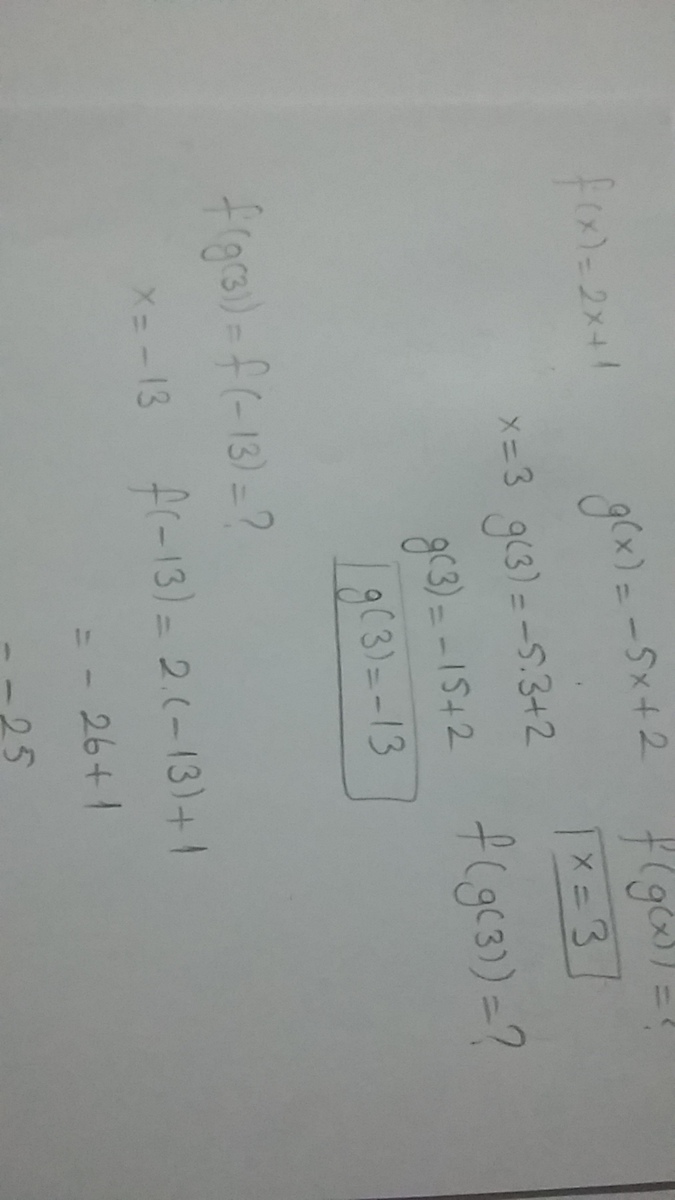 f(x) = 2x+1 g(x) = -5x+2 f(g(x)) = ?
x = 3 g(3) = -5.3+2 x = 3
g(3) = -15+2 f(g(3)) = ?
g(3) = -13
f(g(3)) = f(-13) = ?
x = -13 f(-13) = 2.(-13)+1
= -26+1
= -25